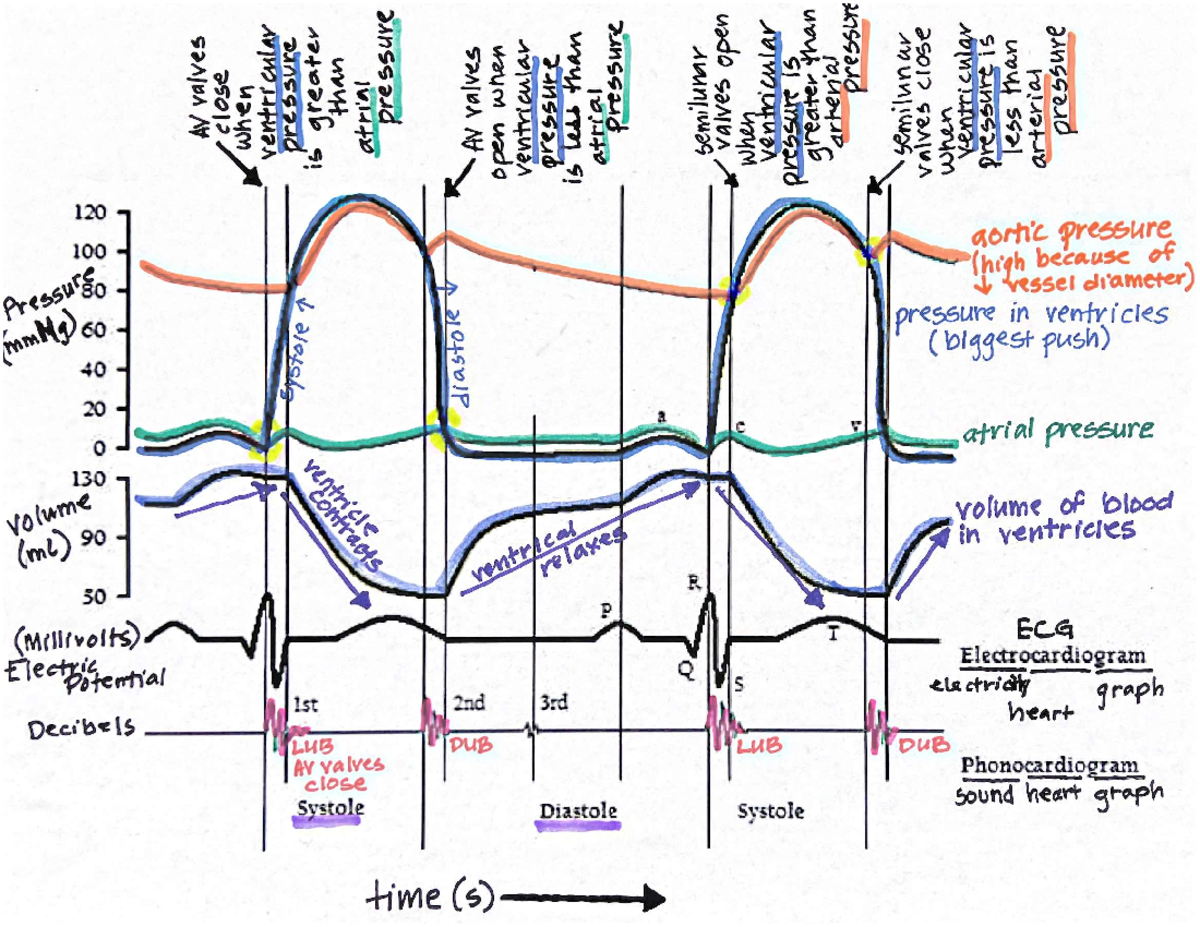 AV valves
close
when
ventricular
pressure
is greater
than
atrial
pressure
AV valves
open when
ventricular
pressure
is less than
atrial
pressure
semilunar
valves open
when
ventricular
pressure is
greater than
arterial
pressure
semilunar
valves close
when
ventricular
pressure is
less than
arterial
pressure
Pressure
(mmHg)
120
100
80
60
40
20
0
systole ↑
diastole ↓
a
c
v
aortic pressure
(high because of
↓ vessel diameter)
pressure in ventricles
(biggest push)
atrial pressure
volume
(mL)
130
90
50
ventricle
contracts
ventrical
relaxes
volume of blood
in ventricles
(Millivolts)
Electric
Potential
P
R
Q
S
T
ECG
Electrocardiogram
electricity
graph
heart
Decibels
1st
2nd
3rd
LUB
AV valves
close
DUB
LUB
DUB
Phonocardiogram
sound heart graph
Systole
Diastole
Systole
time (s)